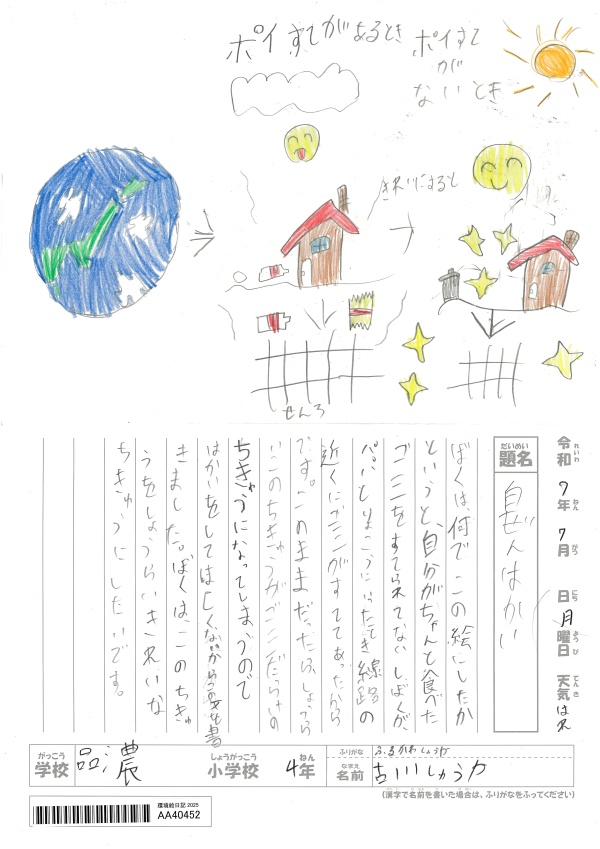 ポイすてがあるとき
ポイすて
が
ないとき
きれいにすると
せんろ
令和7年7月 日月曜日 天気はれ
れいわ ねん がつ にち ようび てんき
だいめい
題名
自ぜんはかい
ぼくは、何でこの絵にしたか
というと、自分がちゃんと食べた
ゴミをすてられてないし、ぼくが
パパとりょこうにいったてき線路の
近くにゴミがすててあったから
です。このままだったら、しょうら
いこのちきゅうがゴミだらけの
ちきゅうになってしまうので
はかいをしてほしくないからこの文を書
きました。ぼくは、このちきゅ
うをしょうらいきれいな
ちきゅうにしたいです。
がっこう
学校
品濃
しょうがっこう
小学校
4年
ねん
ふりがな
ふるかわしょうか
なまえ
名前
古川しゅうか
(漢字で名前を書いた場合は、ふりがなをふってください)
環境絵日記2025
AA40452